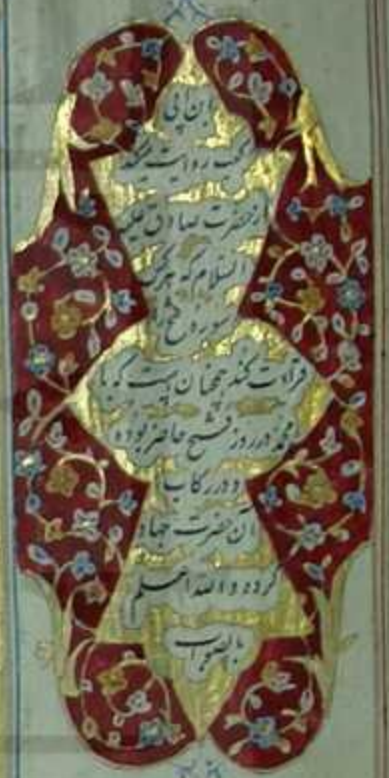 ابن ابی
کعب روایت میکند
از حضرت صادق علیه
السلام که هر کس
سوره فتح را
قراءت کند همچنان است که با
محمد در روز فتح حاضر بوده
و در رکاب
آن حضرت جهاد
کرده والله اعلم
بالصواب